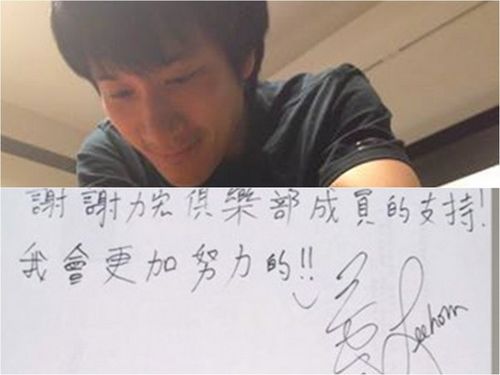 謝謝力宏俱樂部成員的支持!
我會更加努力的!!
Leehom